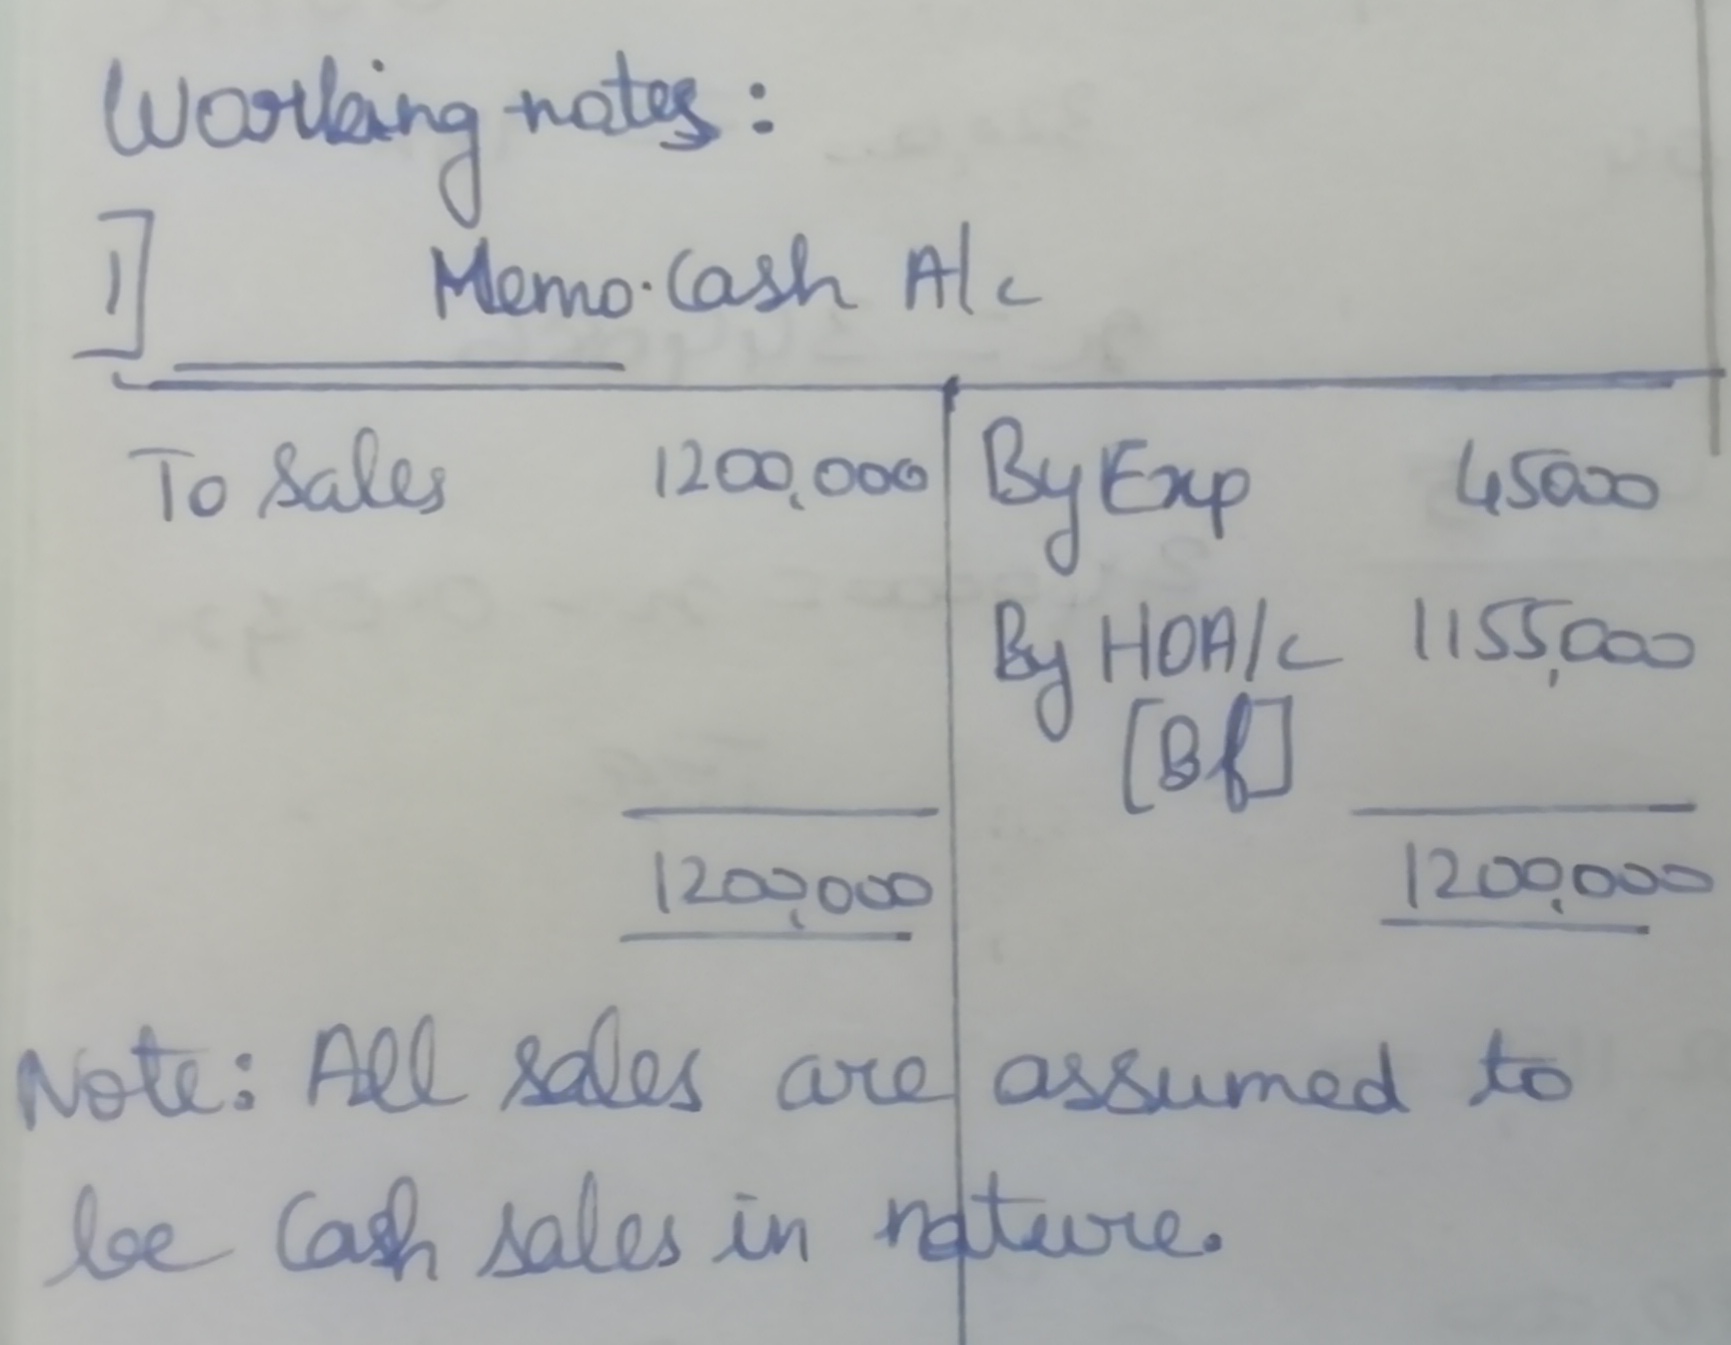 Working notes:
1] Memo. Cash A/c
To Sales 1200,000 By Exp 45000
By HOA/c 1155,000
[Bf]
1200,000 1200,000
Note: All sales are assumed to
be Cash sales in nature.